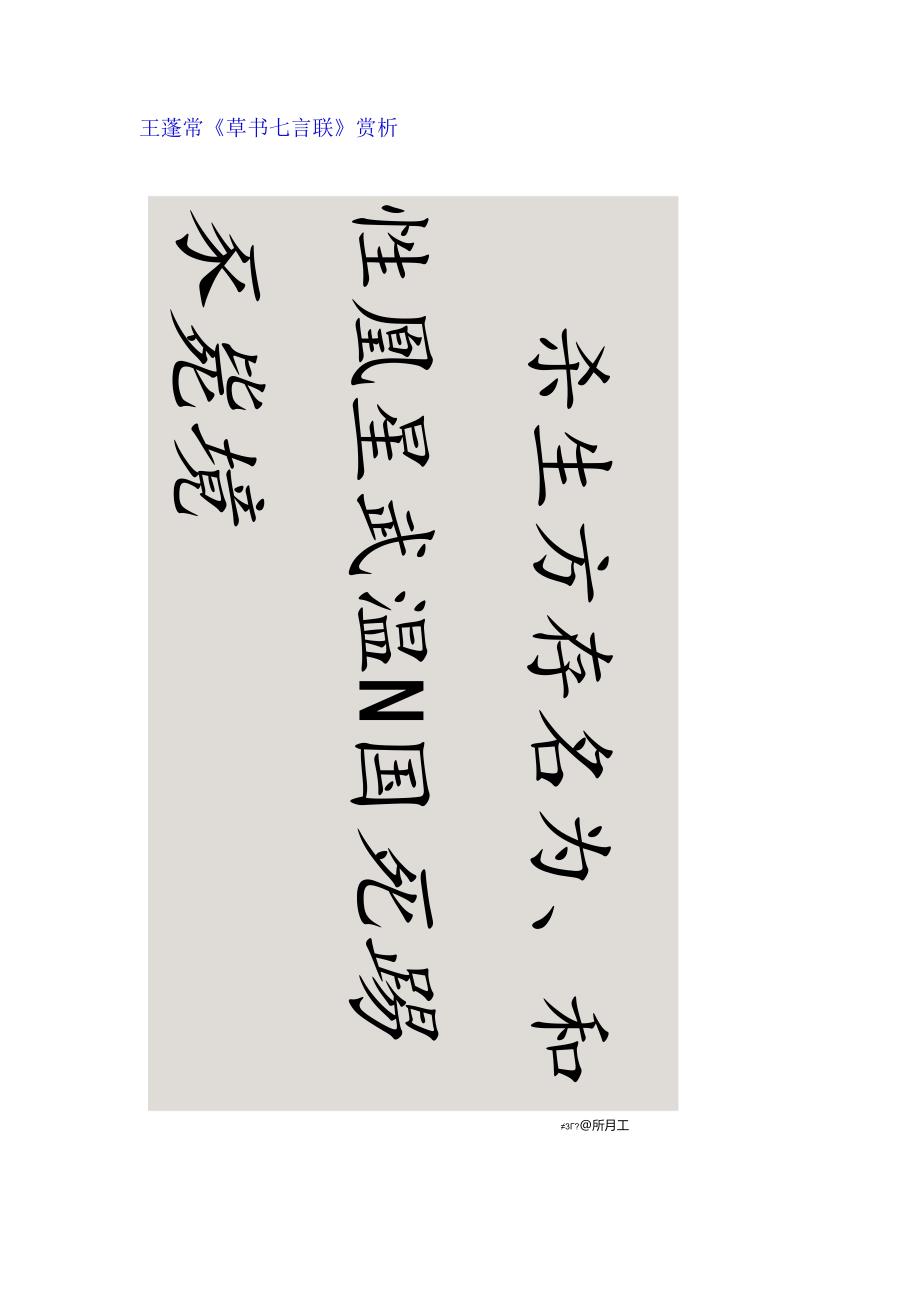 王蓬常《草书七言联》赏析
杀生方存名为、和
性凰星武温N国死踢
豕毙境
≠3Γ?@所月工